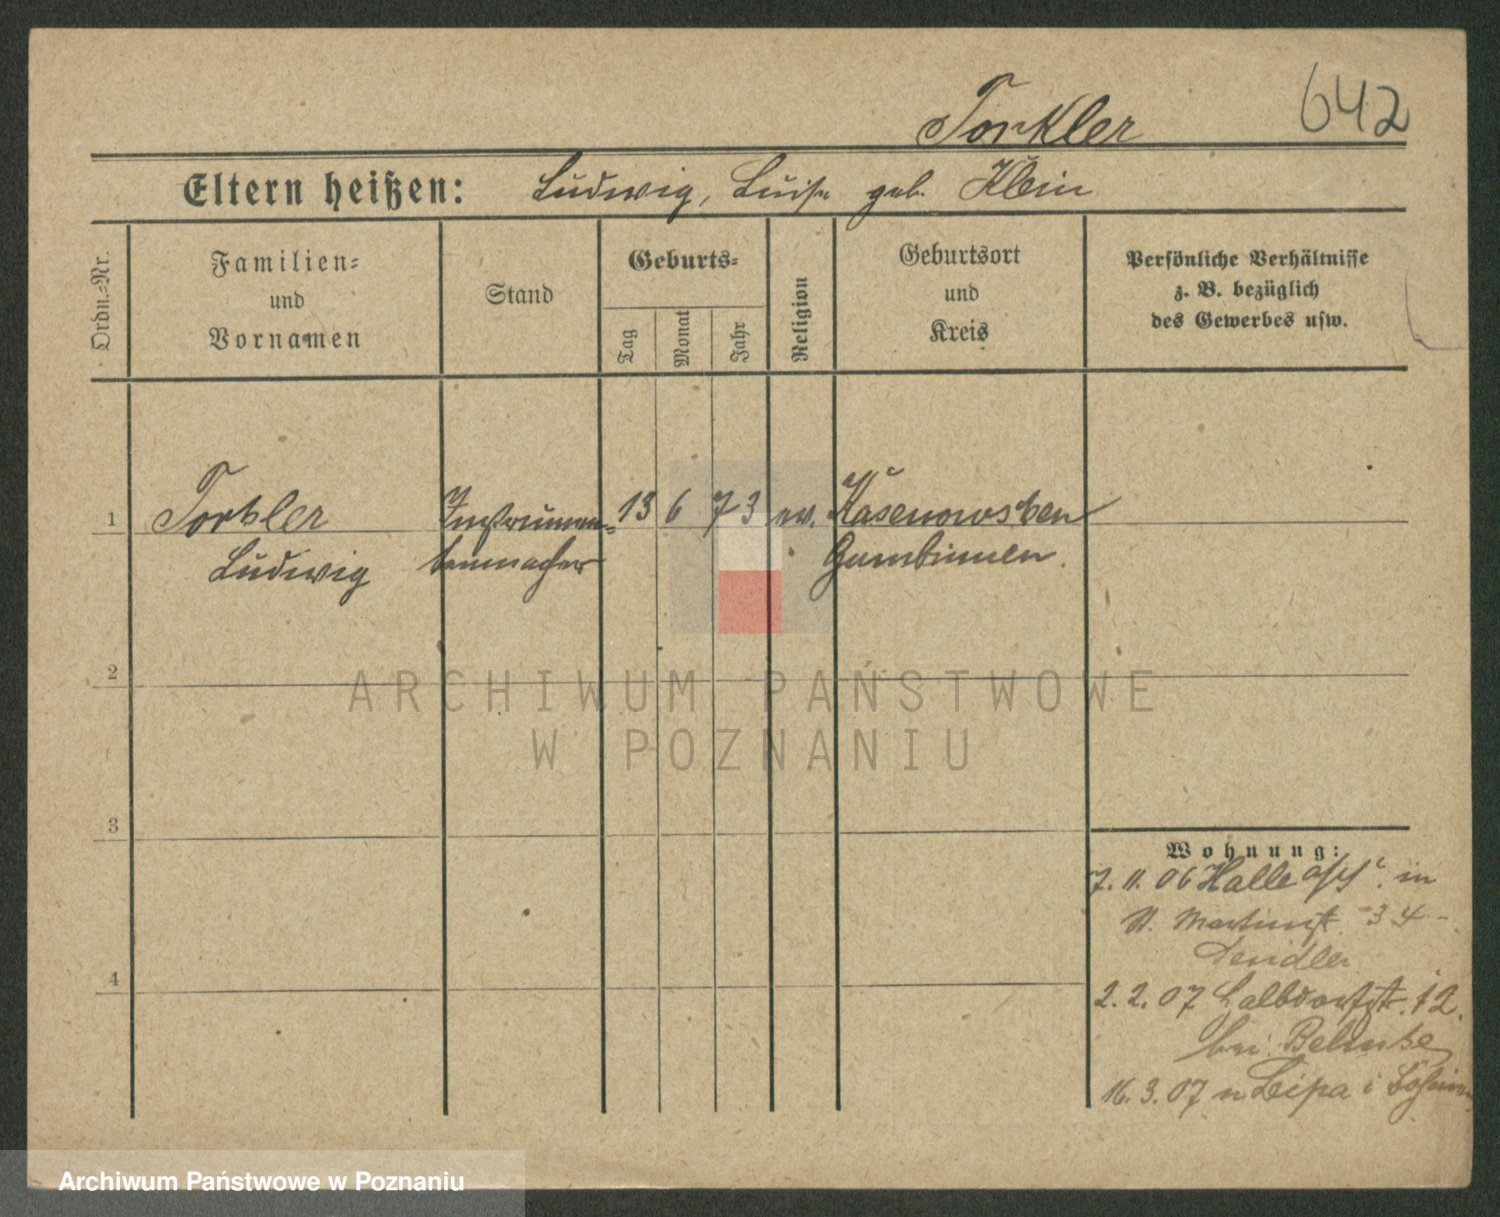 642
Torkler
Eltern heißen: Ludwig, Luise geb. Klein
Ordn.-Nr.
Familien-
und
Vornamen
Stand
Geburts-
Tag
Monat
Jahr
Religion
Geburtsort
und
Kreis
Persönliche Verhältnisse
z. B. bezüglich
des Gewerbes usw.
1 Torkler Instrumen- 13 6 73 ev. Kasenowsken
Ludwig tenmacher Gumbinnen.
2
3
4
Wohnung:
7. 11. 06 Halle a/S. in
St. Martinstr. 34
Dendler
2. 2. 07 Halbdorfstr. 12.
bei
16. 3. 07 n. Leipa i Böhmen
ARCHIWUM PAŃSTWOWE
W POZNANIU
Archiwum Państwowe w Poznaniu